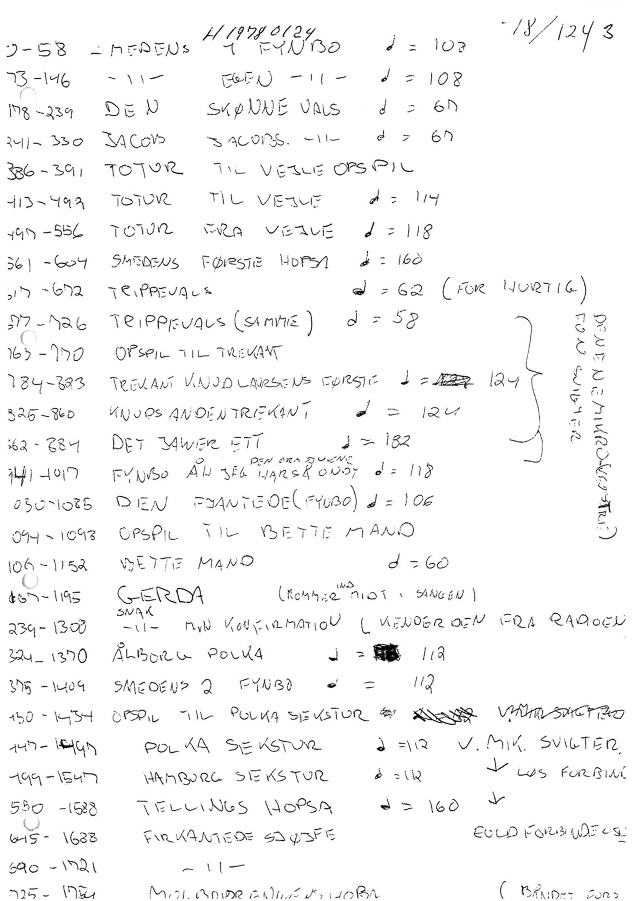 H19780124
-18/124 3
0-58 SMEDENS 1 FYNBO = 108
73-146 -11- EGEN -11- = 108
178-239 DEN SKØNNE VALS = 67
241-330 JACOB JACOBS. -11- = 67
386-391 TOTUR TIL VEJLE OPSPIL
413-492 TOTUR TIL VEJLE = 114
497-556 TOTUR FRA VEJLE = 118
561-604 SMEDENS FØRSTE HOPSA = 160
617-672 TRIPPEVALS = 62 (FOR HURTIG)
677-726 TRIPPEVALS (SAMME) = 58
763-770 OPSPIL TIL TREKANT
784-823 TREKANT KNUD LAURSENS FØRSTE = 124
825-860 KNUDS ANDEN TREKANT = 124
862-884 DET JAWER ETT = 182
DEN ENE MIKROFON SVIGTER
941-1017 FYNBO ÅH JEG HAR SÅ ONDT = 118
1030-1085 DEN FJANTEDE (FYNBO) = 106
1094-1098 OPSPIL TIL BETTE MAND
1106-1152 BETTE MAND = 60
1167-1195 GERDA (KOMMER IND MIDT I SANGEN)
1239-1308 SNAK -11- MIN KONFIRMATION (KENDER DEN FRA RADIOEN
1324-1370 ÅLBORG POLKA = 112
1375-1409 SMEDENS 2 FYNBO = 112
1430-1434 OPSPIL TIL POLKA SEKSTUR
1447-1497 POLKA SEKSTUR = 112 V. MIK. SVIGTER
1499-1547 HAMBURG SEKSTUR = 112 ↓ LØS FORBIND
1550-1588 TELLINGS HOPSA = 160 ↓
1615-1688 FIRKANTEDE SJØJFE GULD FORBINDELSE
1690-1721 -11-
1725-1784 MOLBODRENGENS HOPSA (BÅNDET